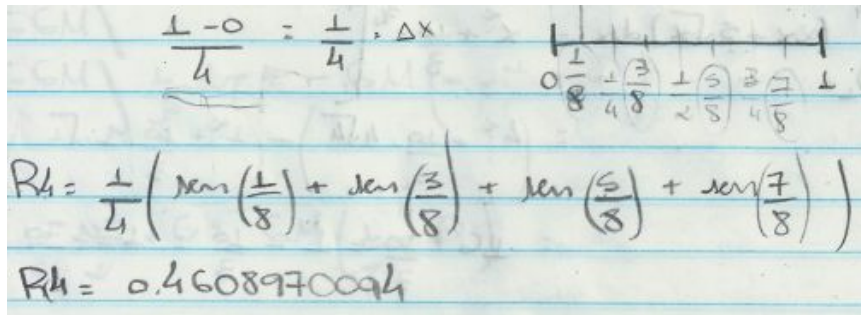 1-0/4 = 1/4 = Δx
0 1/8 1/4 3/8 1/2 5/8 3/4 7/8 1
R4 = 1/4 ( sen (1/8) + sen (3/8) + sen (5/8) + sen (7/8) )
R4 = 0.4608970094